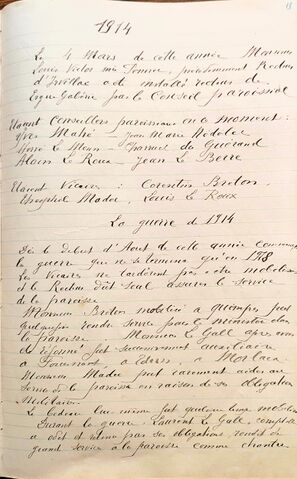 1914
Le 4 Mars de cette année Monsieur
Louis Victor précédemment Recteur
d'Irvillac a été installé recteur de
Ergué-Gabéric par le Conseil paroissial
Etaient Conseillers paroissiaux en ce moment :
Yves Mahé - Jean Marie Nédélec
Pierre Le Meur - Guéguen du Quélennec
Alain Le Roux - Jean Le Berre
Etaient Vicaires : Corentin Breton,
Madec, Louis Le Roux
La guerre de 1914
Dès le début d'Aout de cette année commença
la guerre qui ne se termina qu'en 1918
Les Vicaires ne tardèrent pas à être mobilisés
et le Recteur dût seul assurer le service
de la paroisse
Monsieur Breton mobilisé à Quimper put
quelquefois rendre service pour le ministère dans
la paroisse. Monsieur Le Gall après avoir
été réformé fut successivement auxiliaire
à Fouesnant, à Edern, à Morlaix
Monsieur Madec put rarement aider au
service de la paroisse en raison de ses obligations
Militaires.
Le bedeau lui-même fut quelque temps mobilisé
Durant la guerre Laurent Le Gall, comptable
se rendit
grand service à la paroisse comme chantre